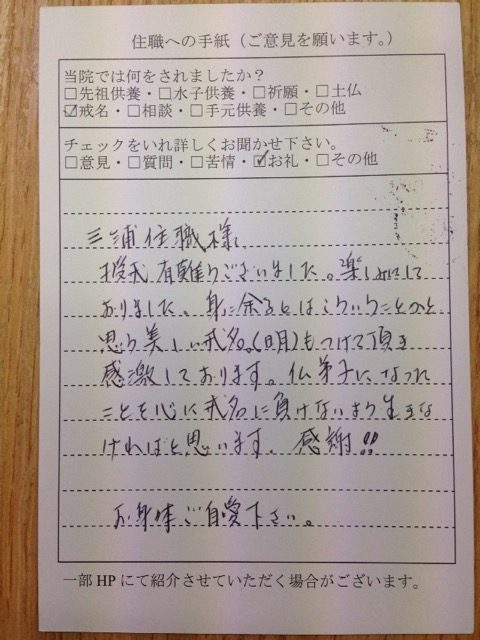 住職への手紙（ご意見を願います。）
当院では何をされましたか？
□先祖供養・□水子供養・□祈願・□土仏
☑戒名・□相談・□手元供養・□その他
チェックをいれ詳しくお聞かせ下さい。
□意見・□質問・□苦情・☑お礼・□その他
三浦住職様
授戒有難うございました。楽しみにして
おりました。身に余るとはこういうことかと
思う美しい戒名。(明)もつけて頂き
感激しております。仏弟子になった
ことを心に戒名に負けないよう生きな
ければと思います。感謝!!
お身体ご自愛下さい。
一部HPにて紹介させていただく場合がございます。